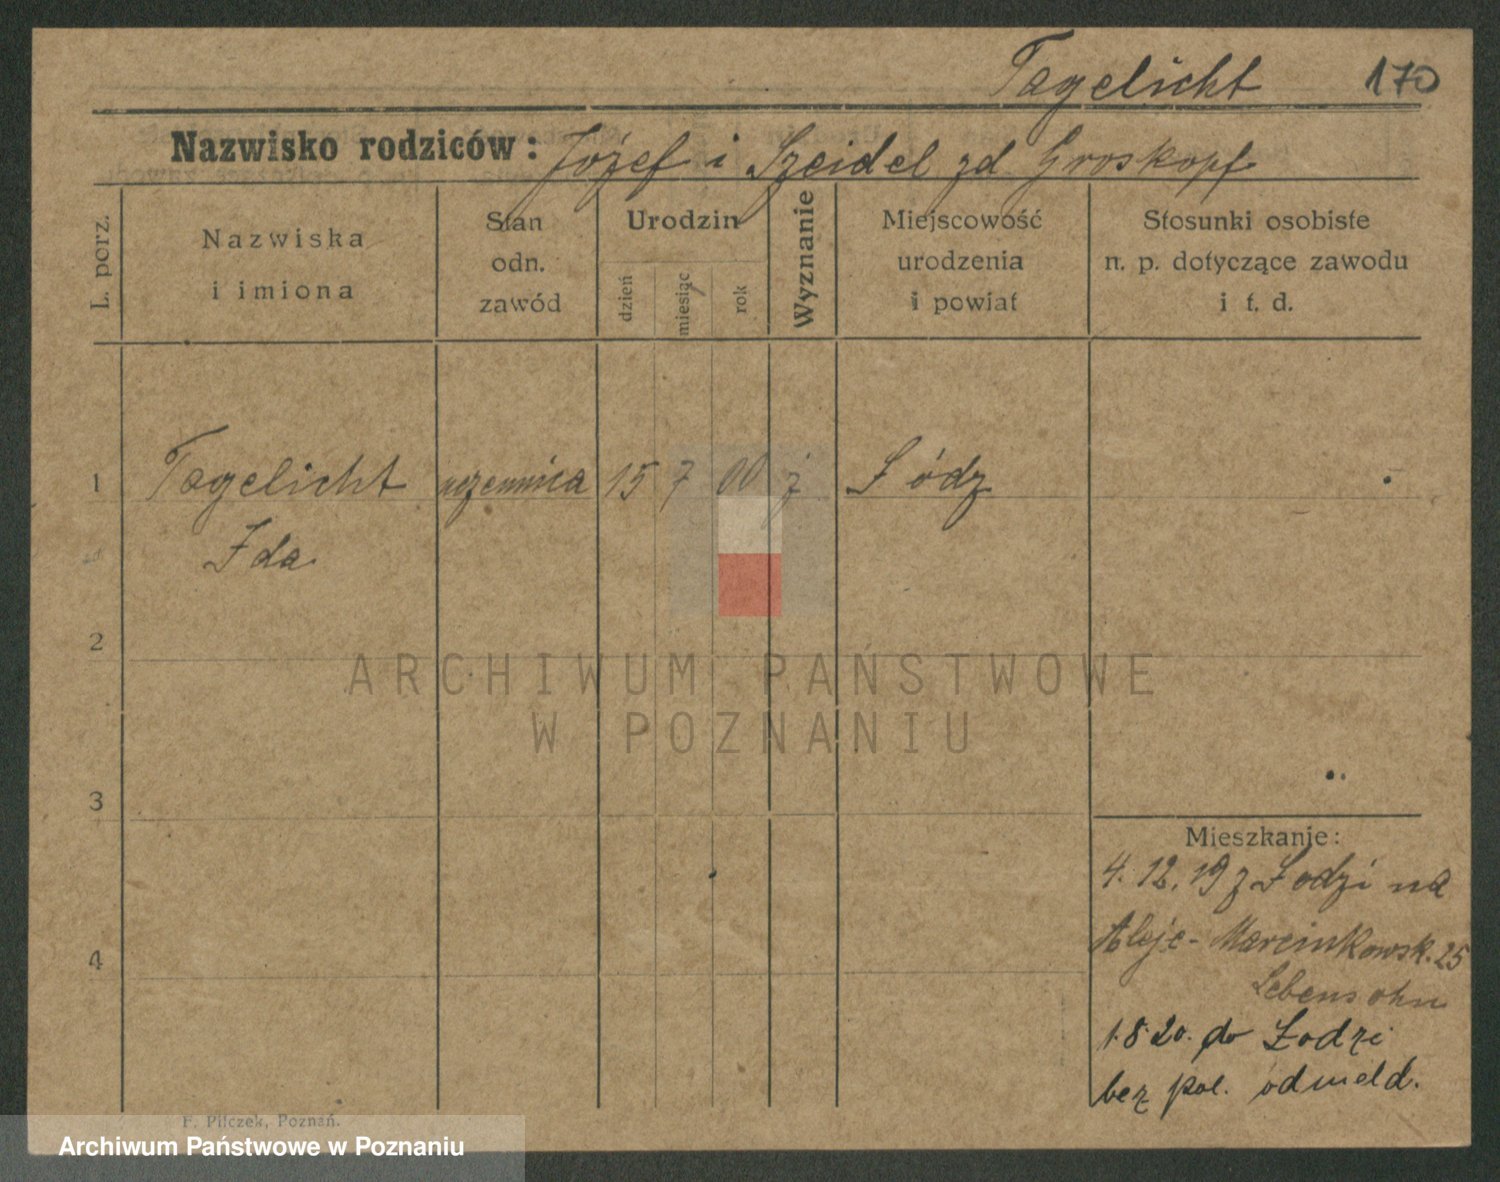 Tagelicht 170
Nazwisko rodziców: Józef i Szeidel zd Groskopf
L. porz.
Nazwiska
i imiona
Stan
odn.
zawód
Urodzin
dzień
miesiąc
rok
Wyznanie
Miejscowość
urodzenia
i powiat
Stosunki osobiste
n. p. dotyczące zawodu
i t. d.
1 Tagelicht uczennica 15 7 00 ż Łódz
Ida
2
ARCHIWUM PAŃSTWOWE
W POZNANIU
3
Mieszkanie:
4. 12. 19 z Łodzi na
Aleje-Marcinkowsk. 25
4
Lebensohn
1.8.20. do Łodzi
bez pol. odmeld.
F. Pilczek, Poznań.
Archiwum Państwowe w Poznaniu